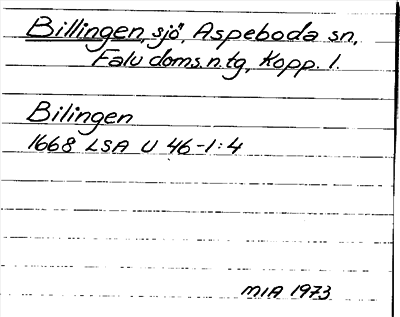 Billingen, sjö, Aspeboda sn,
Falu doms.n.tg, Kopp. l.
Bilingen
1668 LSA U 46-1:4
MIA 1973